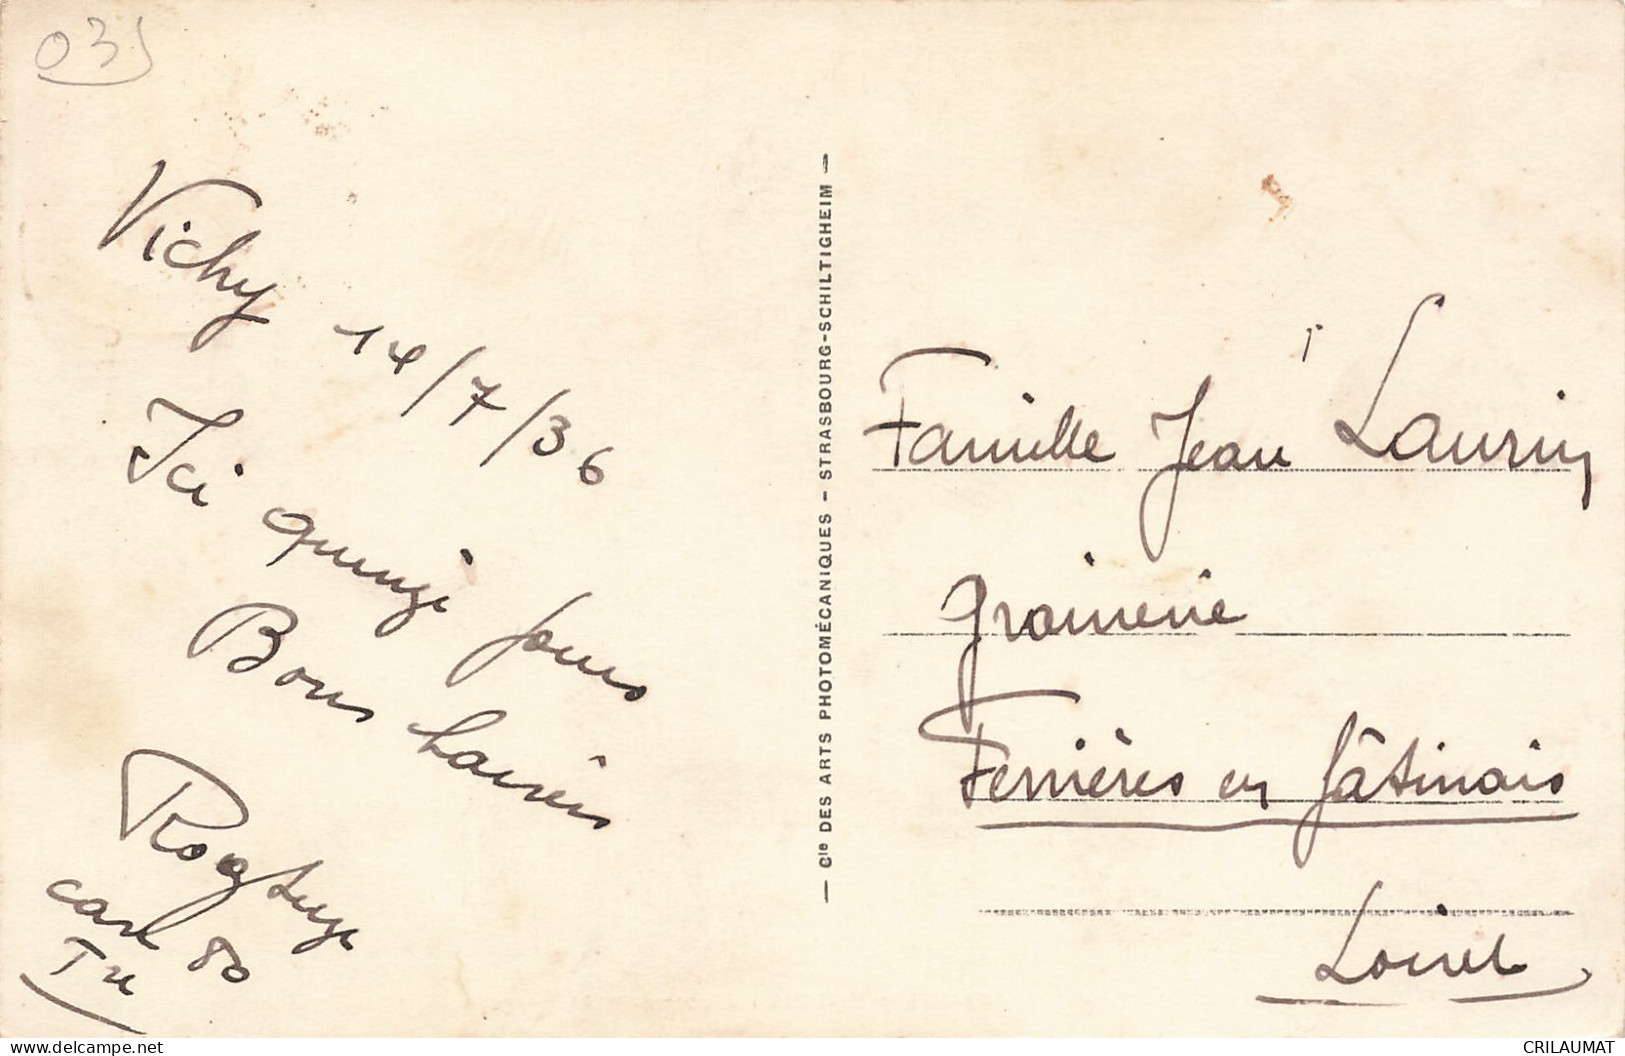 035
Vichy 14/7/36
Ici quinze jours
Bons baisers
— Cie DES ARTS PHOTOMÉCANIQUES - STRASBOURG-SCHILTIGHEIM —
Famille Jean Laurin
grainerie
Ferrières en Gâtinais
Loiret
delcampe.net
CRILAUMAT